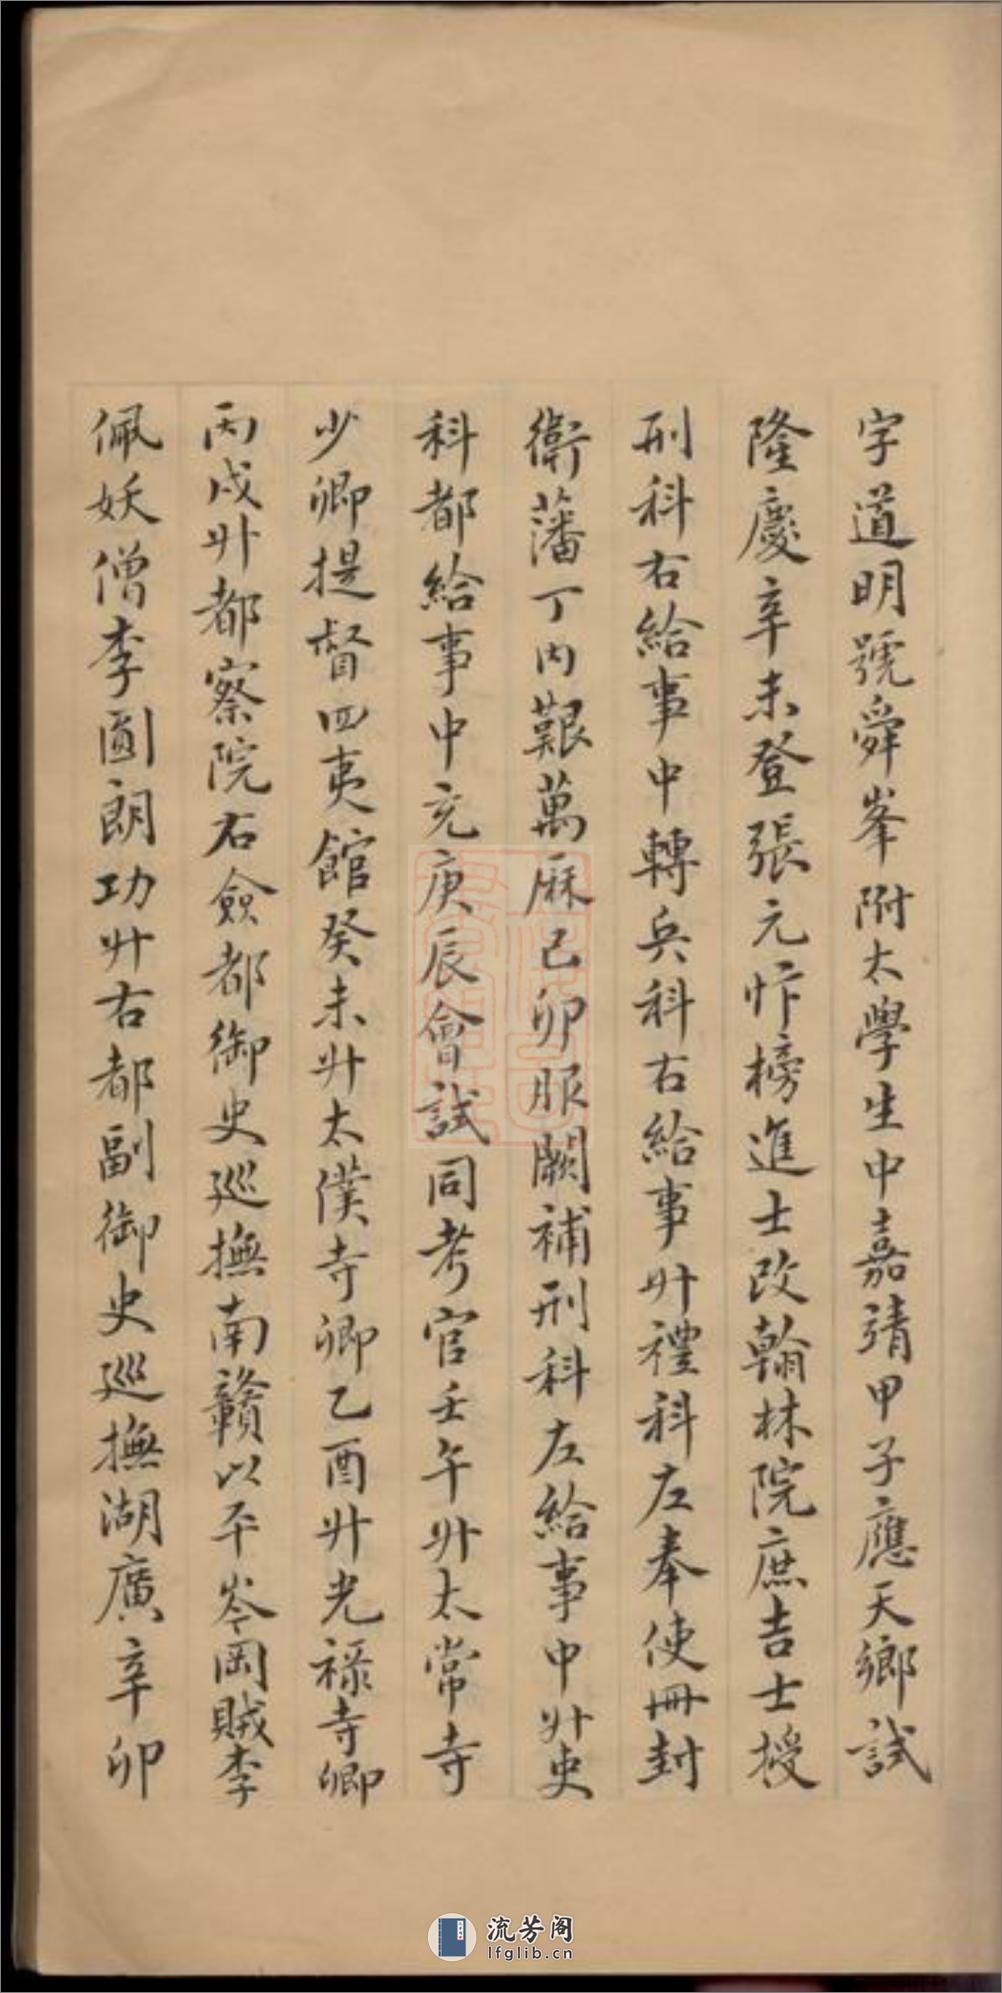 字道明號舜峯附太學生中嘉靖甲子應天鄉試
隆慶辛未登張元忭榜進士改翰林院庶吉士授
刑科右給事中轉兵科右給事廾禮科左奉使冊封
衛藩丁內艱萬厤己卯服闕補刑科左給事中廾吏
科都給事中充庚辰會試同考官壬午廾太常寺
少卿提督四夷館癸未廾太僕寺卿乙酉廾光祿寺卿
丙戌廾都察院右僉都御史巡撫南贛以平岑岡賊李
佩妖僧李圓朗功廾右都副御史巡撫湖廣辛卯
流芳阁
lfglib.cn